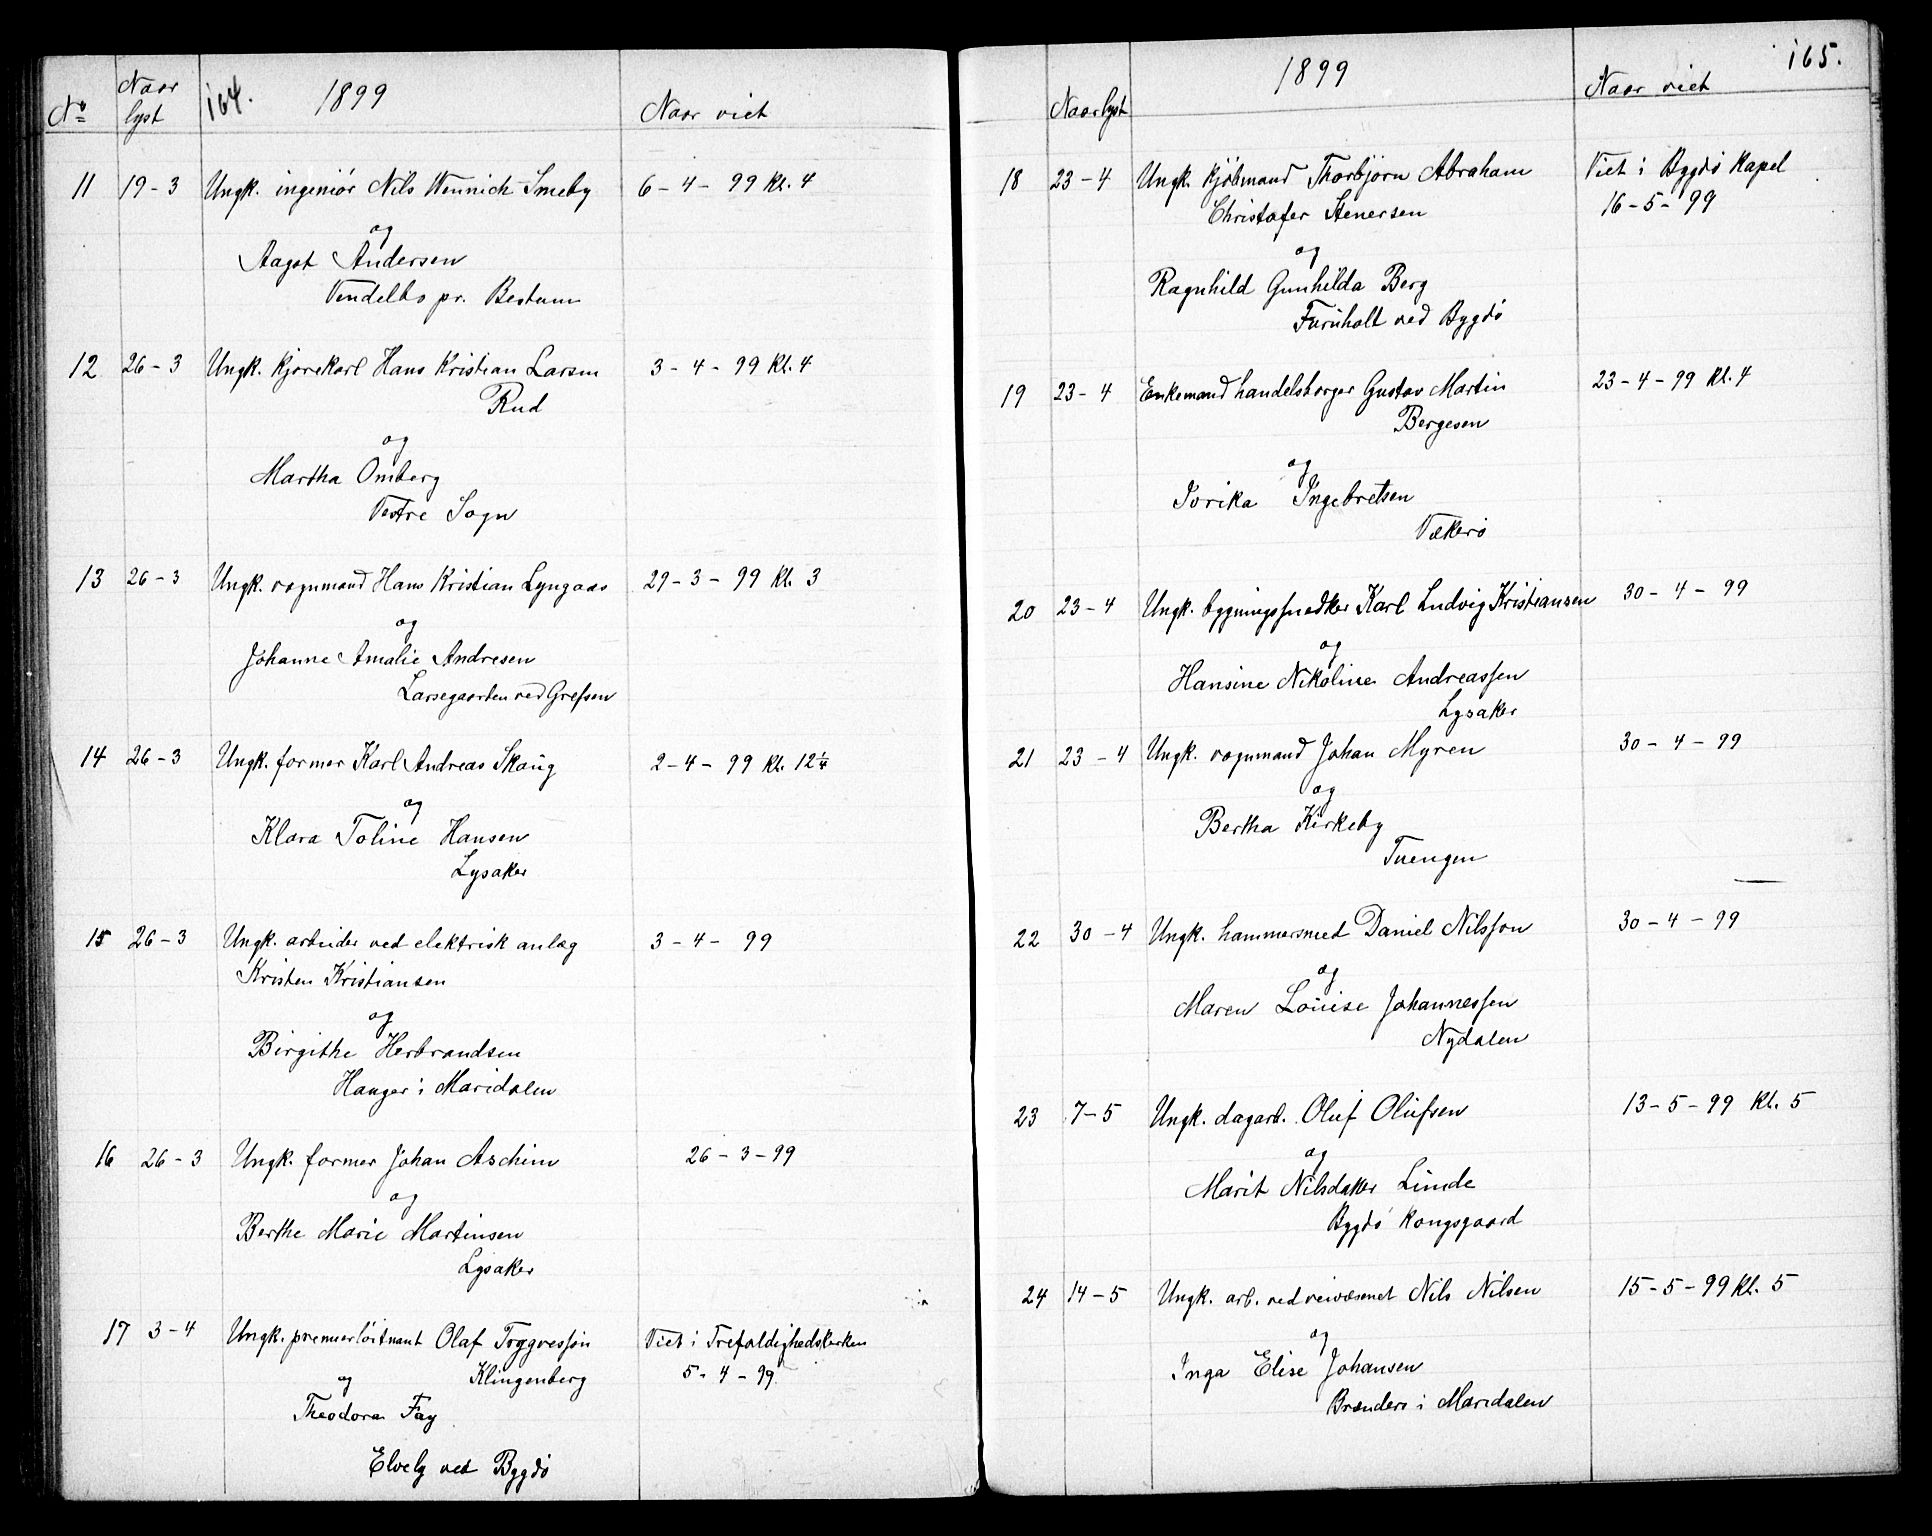 No Naar lyst 164. 1899 Naar viet
11 19-3 Ungk. ingeniör Nils Wennich Smeby 6-4-99 Kl. 4
og
Aagot Andersen
Vendelbo pr. Bestum
12 26-3 Ungk. kjørekarl Hans Kristian Larsen 3-4-99 Kl. 4
Rud
og
Martha Omberg
Vestre Sogn
13 26-3 Ungk. vognmand Hans Kristian Lyngaas 29-3-99 Kl. 3
og
Johanne Amalie Andresen
Larsegaarden ved Grefsen
14 26-3 Ungk. former Karl Andreas Skaug 2-4-99 Kl. 12 1/4
og
Klara Toline Hansen
Lysaker
15 26-3 Ungk. arbeider ved elektrisk anlæg 3-4-99
Kristen Kristiansen
og
Birgithe Herbrandsen
Hauger i Maridalen
16 26-3 Ungk. former Johan Aschim 26-3-99
og
Berthe Marie Martinsen
Lysaker
17 3-4 Ungk. premierløitnant Olaf Tryggvessøn Viet i Trefoldighedskirken
Klingenberg 5-4-99
og
Theodora Fay
Elvely ved Bygdö
Naar lyst 1899 Naar viet 165.
18 23-4 Ungk. Kjöbmand Thorbjörn Abraham Viet i Bygdö Kapel
Christofer Stenersen 16-5-99
og
Ragnhild Gunhilda Berg
Furuholt ved Bygdö
19 23-4 Enkemand handelsborger Gustav Martin 23-4-99 Kl. 4
Bergesen
og
Iorika Ingebretsen
Vækerö
20 23-4 Ungk. bygningssnedker Karl Ludvig Kristiansen 30-4-99
og
Hansine Nikoline Andreassen
Lysaker
21 23-4 Ungk. vognmand Johan Myren 30-4-99
og
Bertha Kirkeby
Tuengen
22 30-4 Ungk. hammersmed Daniel Nilsson 30-4-99
og
Maren Louise Johannessen
Nydalen
23 7-5 Ungk. dagarb. Oluf Olufsen 13-5-99 Kl. 5
og
Marit Nilsdatter Linde
Bygdö Kongsgaard
24 14-5 Ungk. arb. ved veivæsenet Nils Nilsen 15-5-99 Kl. 5
og
Inga Elise Johansen
Brænderi i Maridalen